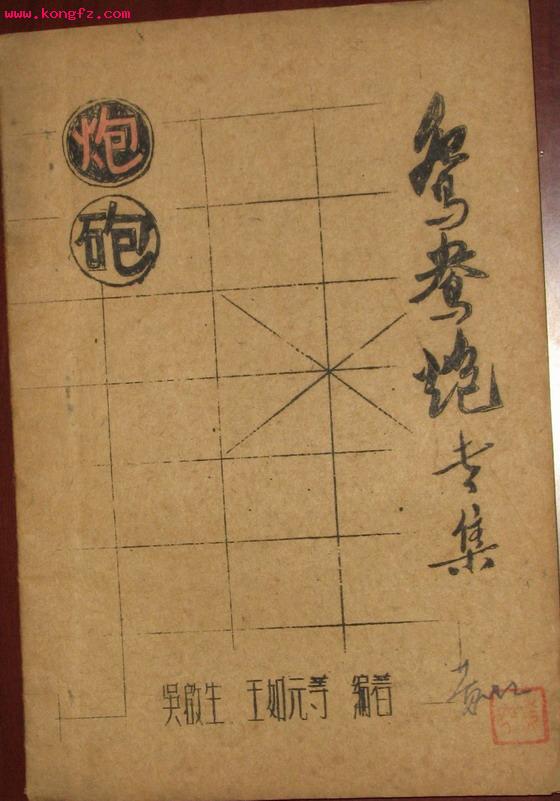 www.kongfz.com
炮
砲
鸳鸯炮专集
吴啟生 王如元等 编著